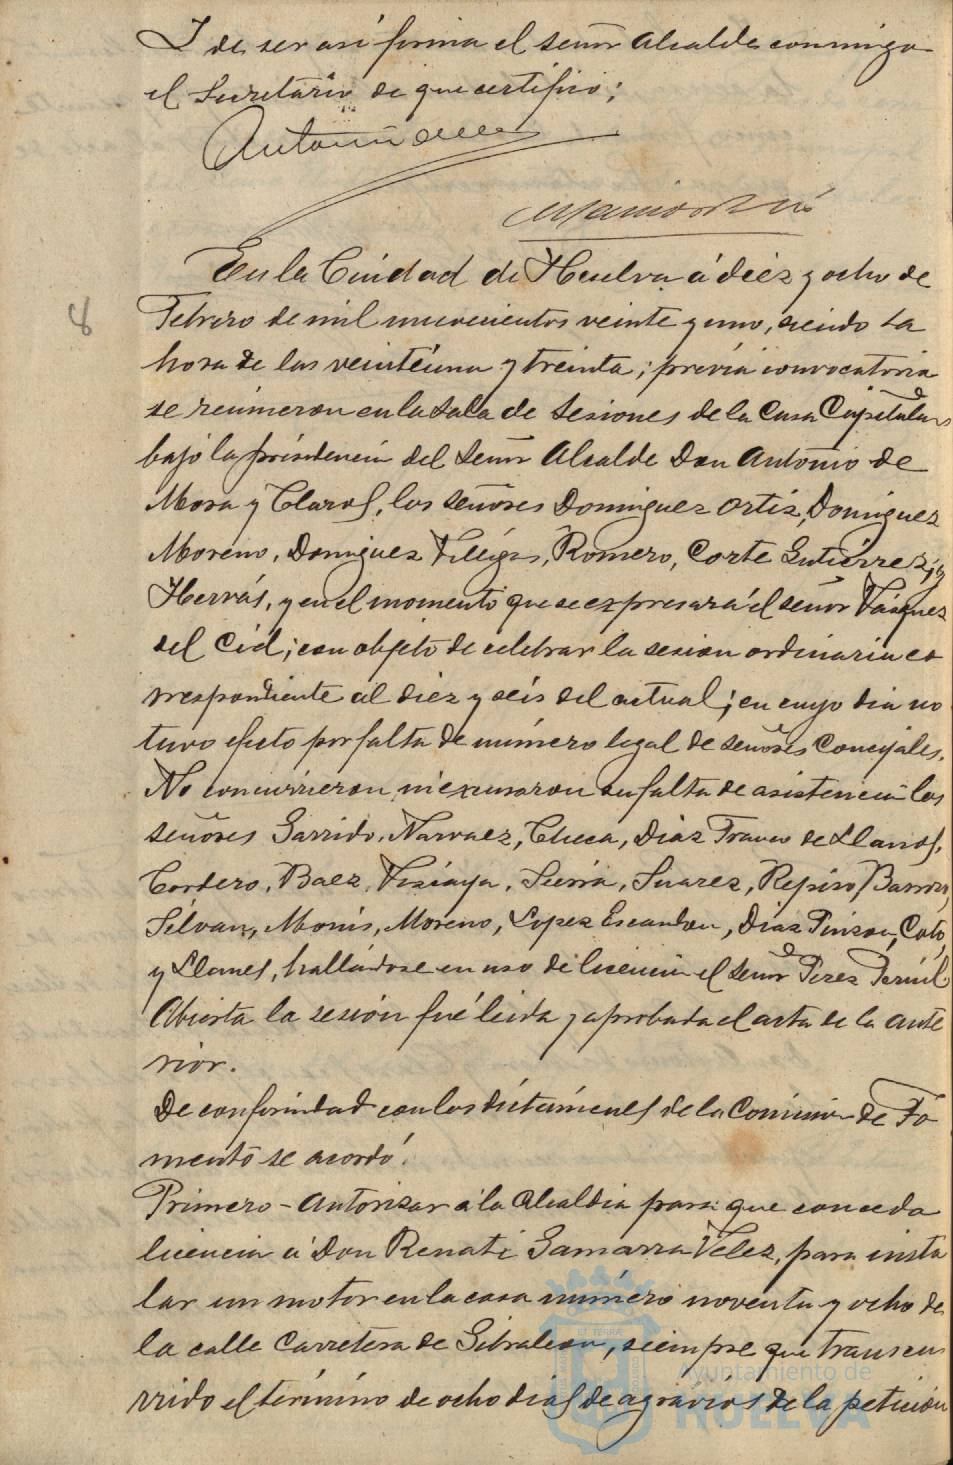 Y de ser así firma el señor Alcalde conmigo
el Secretario de que certifico;
Antonio de
En la Ciudad de Huelva á diez y ocho de
8
Febrero de mil nuevecientos veinte y uno, siendo la
hora de las veintéuna y treinta; prévia convocatoria
se reunieron en la Sala de Sesiones de la Casa Capitular
bajo la présidencia del Señor Alcalde Don Antonio de
Mora y Claros, los señores Dominguez Ortiz, Dominguez
Moreno, Dominguez Villégas, Romero, Corte Gutiérrez, y
Hervás, y en el momento que se expresará el señor Vázquez
del Cid; con objeto de celebrar la sesion ordinaria co
rrespondiente al diez y seis del actual; en cuyo dia no
tuvo efecto por falta de número legal de señores Concejales.
No concurrieron ni excusaron su falta de asistencia los
señores Garrido, Narvaez, Checa, Diaz Franco de Llanos,
Cordero, Baez, Vizcaya, Sierra, Suarez, Repiso, Barroso,
Silvan, Monis, Moreno, Lopez Escandon, Diaz Pinzon, Coto,
y Llanes, hallándose en uso de licencia el señor Perez
Abierta la sesión fué leida y aprobada el acta de la ante
rior.
De conformidad con los dictámenes de la Comision de Fo
mento se acordó:
Primero - Autorizar á la Alcaldia para que conceda
licencia á Don Renati Gamarra Velez, para insta
lar un motor en la casa número noventa y ocho de
la calle Carretera de Gibraleon, siempre que transcu
rrido el término de ocho dias de agrávios de la petición
Ayuntamiento de
HUELVA